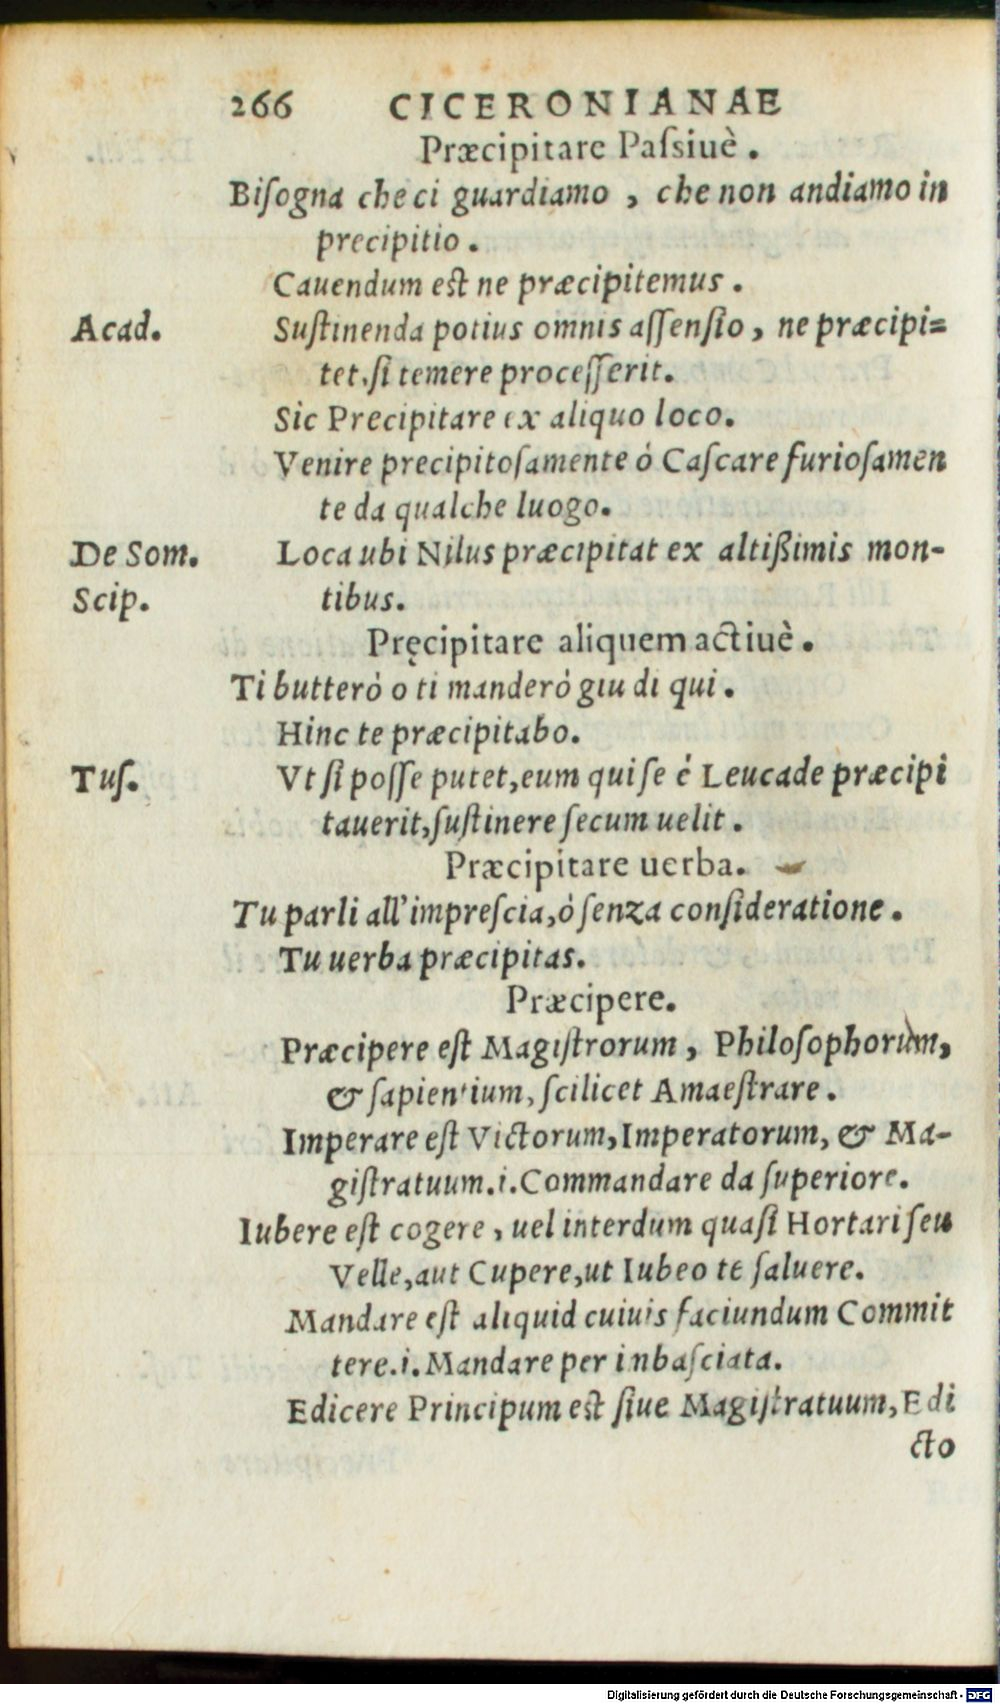 266 CICERONIANAE
Præcipitare Paſsiuè.
Biſogna che ci guardiamo, che non andiamo in
precipitio.
Cauendum eſt ne præcipitemus.
Acad. Suſtinenda potius omnis aſſenſio, ne præcipi=
tet, ſi temere proceſſerit.
Sic Precipitare ex aliquo loco.
Venire precipitoſamente ó Caſcare furioſamen
te da qualche luogo.
De Som. Loca ubi Nilus præcipitat ex altißimis mon-
Scip. tibus.
Pręcipitare aliquem actiuè.
Ti butteró o ti manderó giu di qui.
Hinc te præcipitabo.
Tuſ. Vt ſi poſſe putet, eum qui ſe é Leucade præcipi
tauerit, ſuſtinere ſecum uelit.
Præcipitare uerba.
Tu parli all'impreſcia, ó ſenza conſideratione.
Tu uerba præcipitas.
Præcipere.
Præcipere eſt Magiſtrorum, Philoſophorum,
& ſapientium, ſcilicet Amaeſtrare.
Imperare eſt Victorum, Imperatorum, & Ma-
giſtratuum.i.Commandare da ſuperiore.
Iubere eſt cogere, uel interdum quaſi Hortari ſeu
Velle, aut Cupere, ut Iubeo te ſaluere.
Mandare eſt aliquid cuiuis faciundum Commit
tere.i.Mandare per inbaſciata.
Edicere Principum eſt ſiue Magiſtratuum, Edi
cto
Digitalisierung gefördert durch die Deutsche Forschungsgemeinschaft - DFG